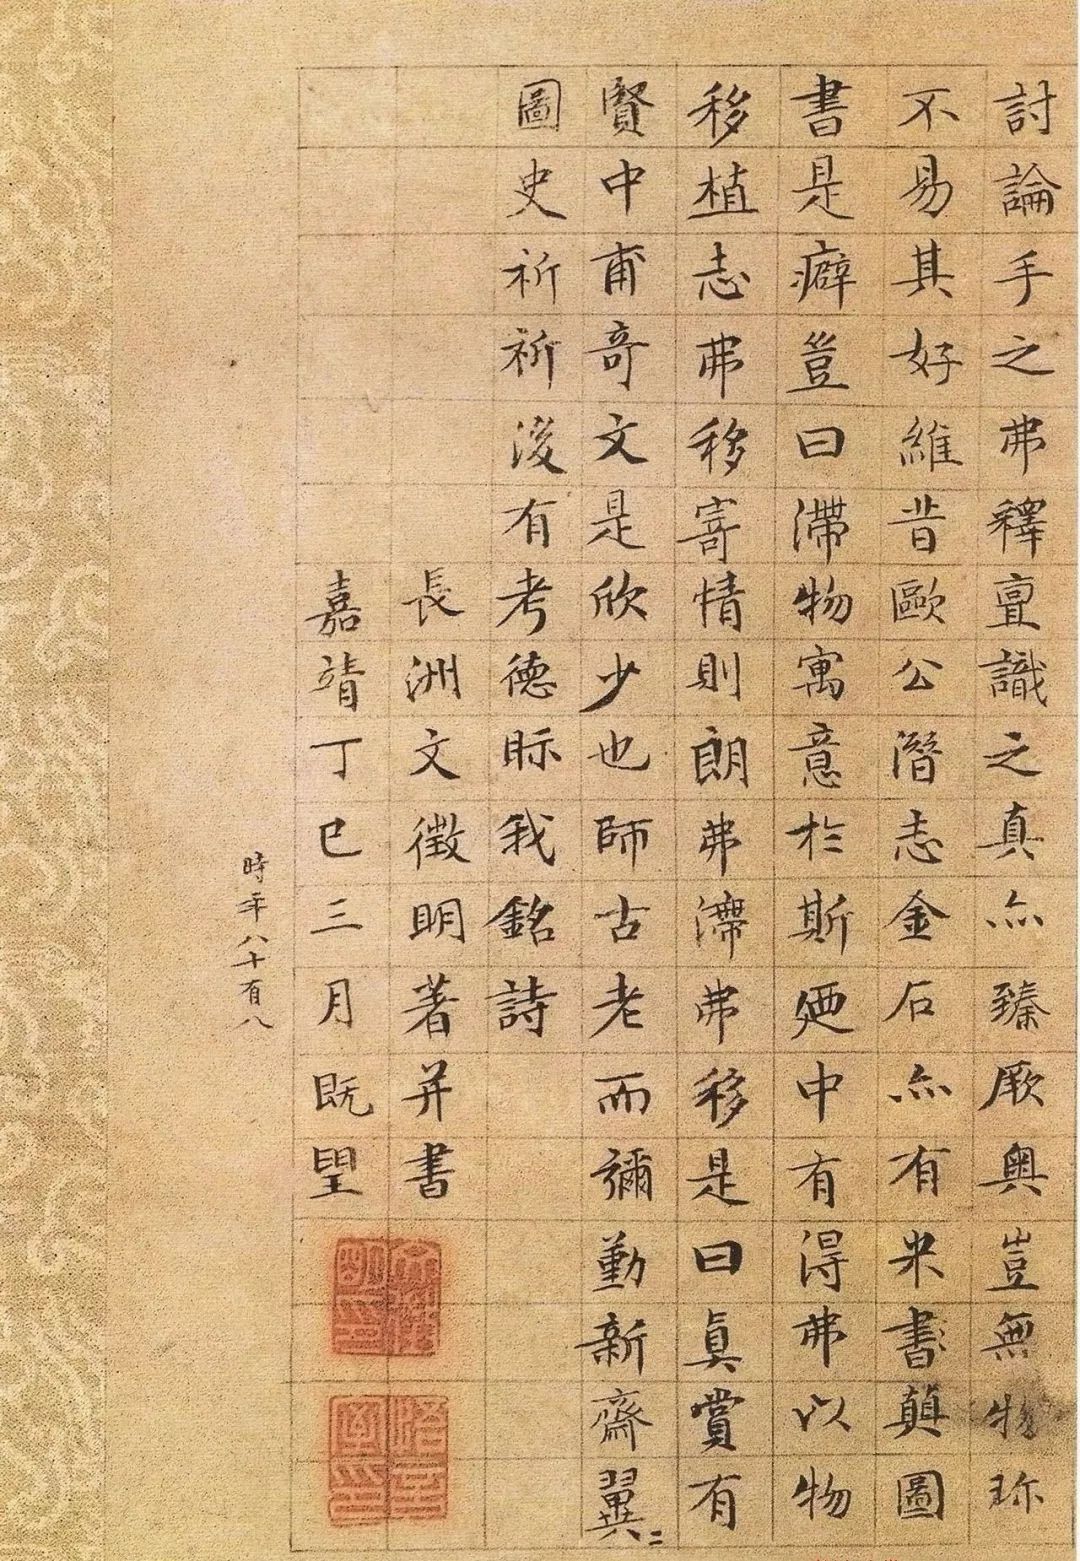 討論手之弗釋亶識之真亦臻厥奥豈無物珎
不易其好維昔歐公潛志金石亦有米書顛圖
書是癖豈曰滯物寓意於斯廼中有得弗以物
移植志弗移寄情則朗弗滯弗移是曰真賞有
賢中甫奇文是欣少也師古老而彌勤新齋翼〻
圖史祈祈後有考德眎我銘詩
長洲文徵明著并書
嘉靖丁巳三月既望
時年八十有八
文徵明印
悟言室印